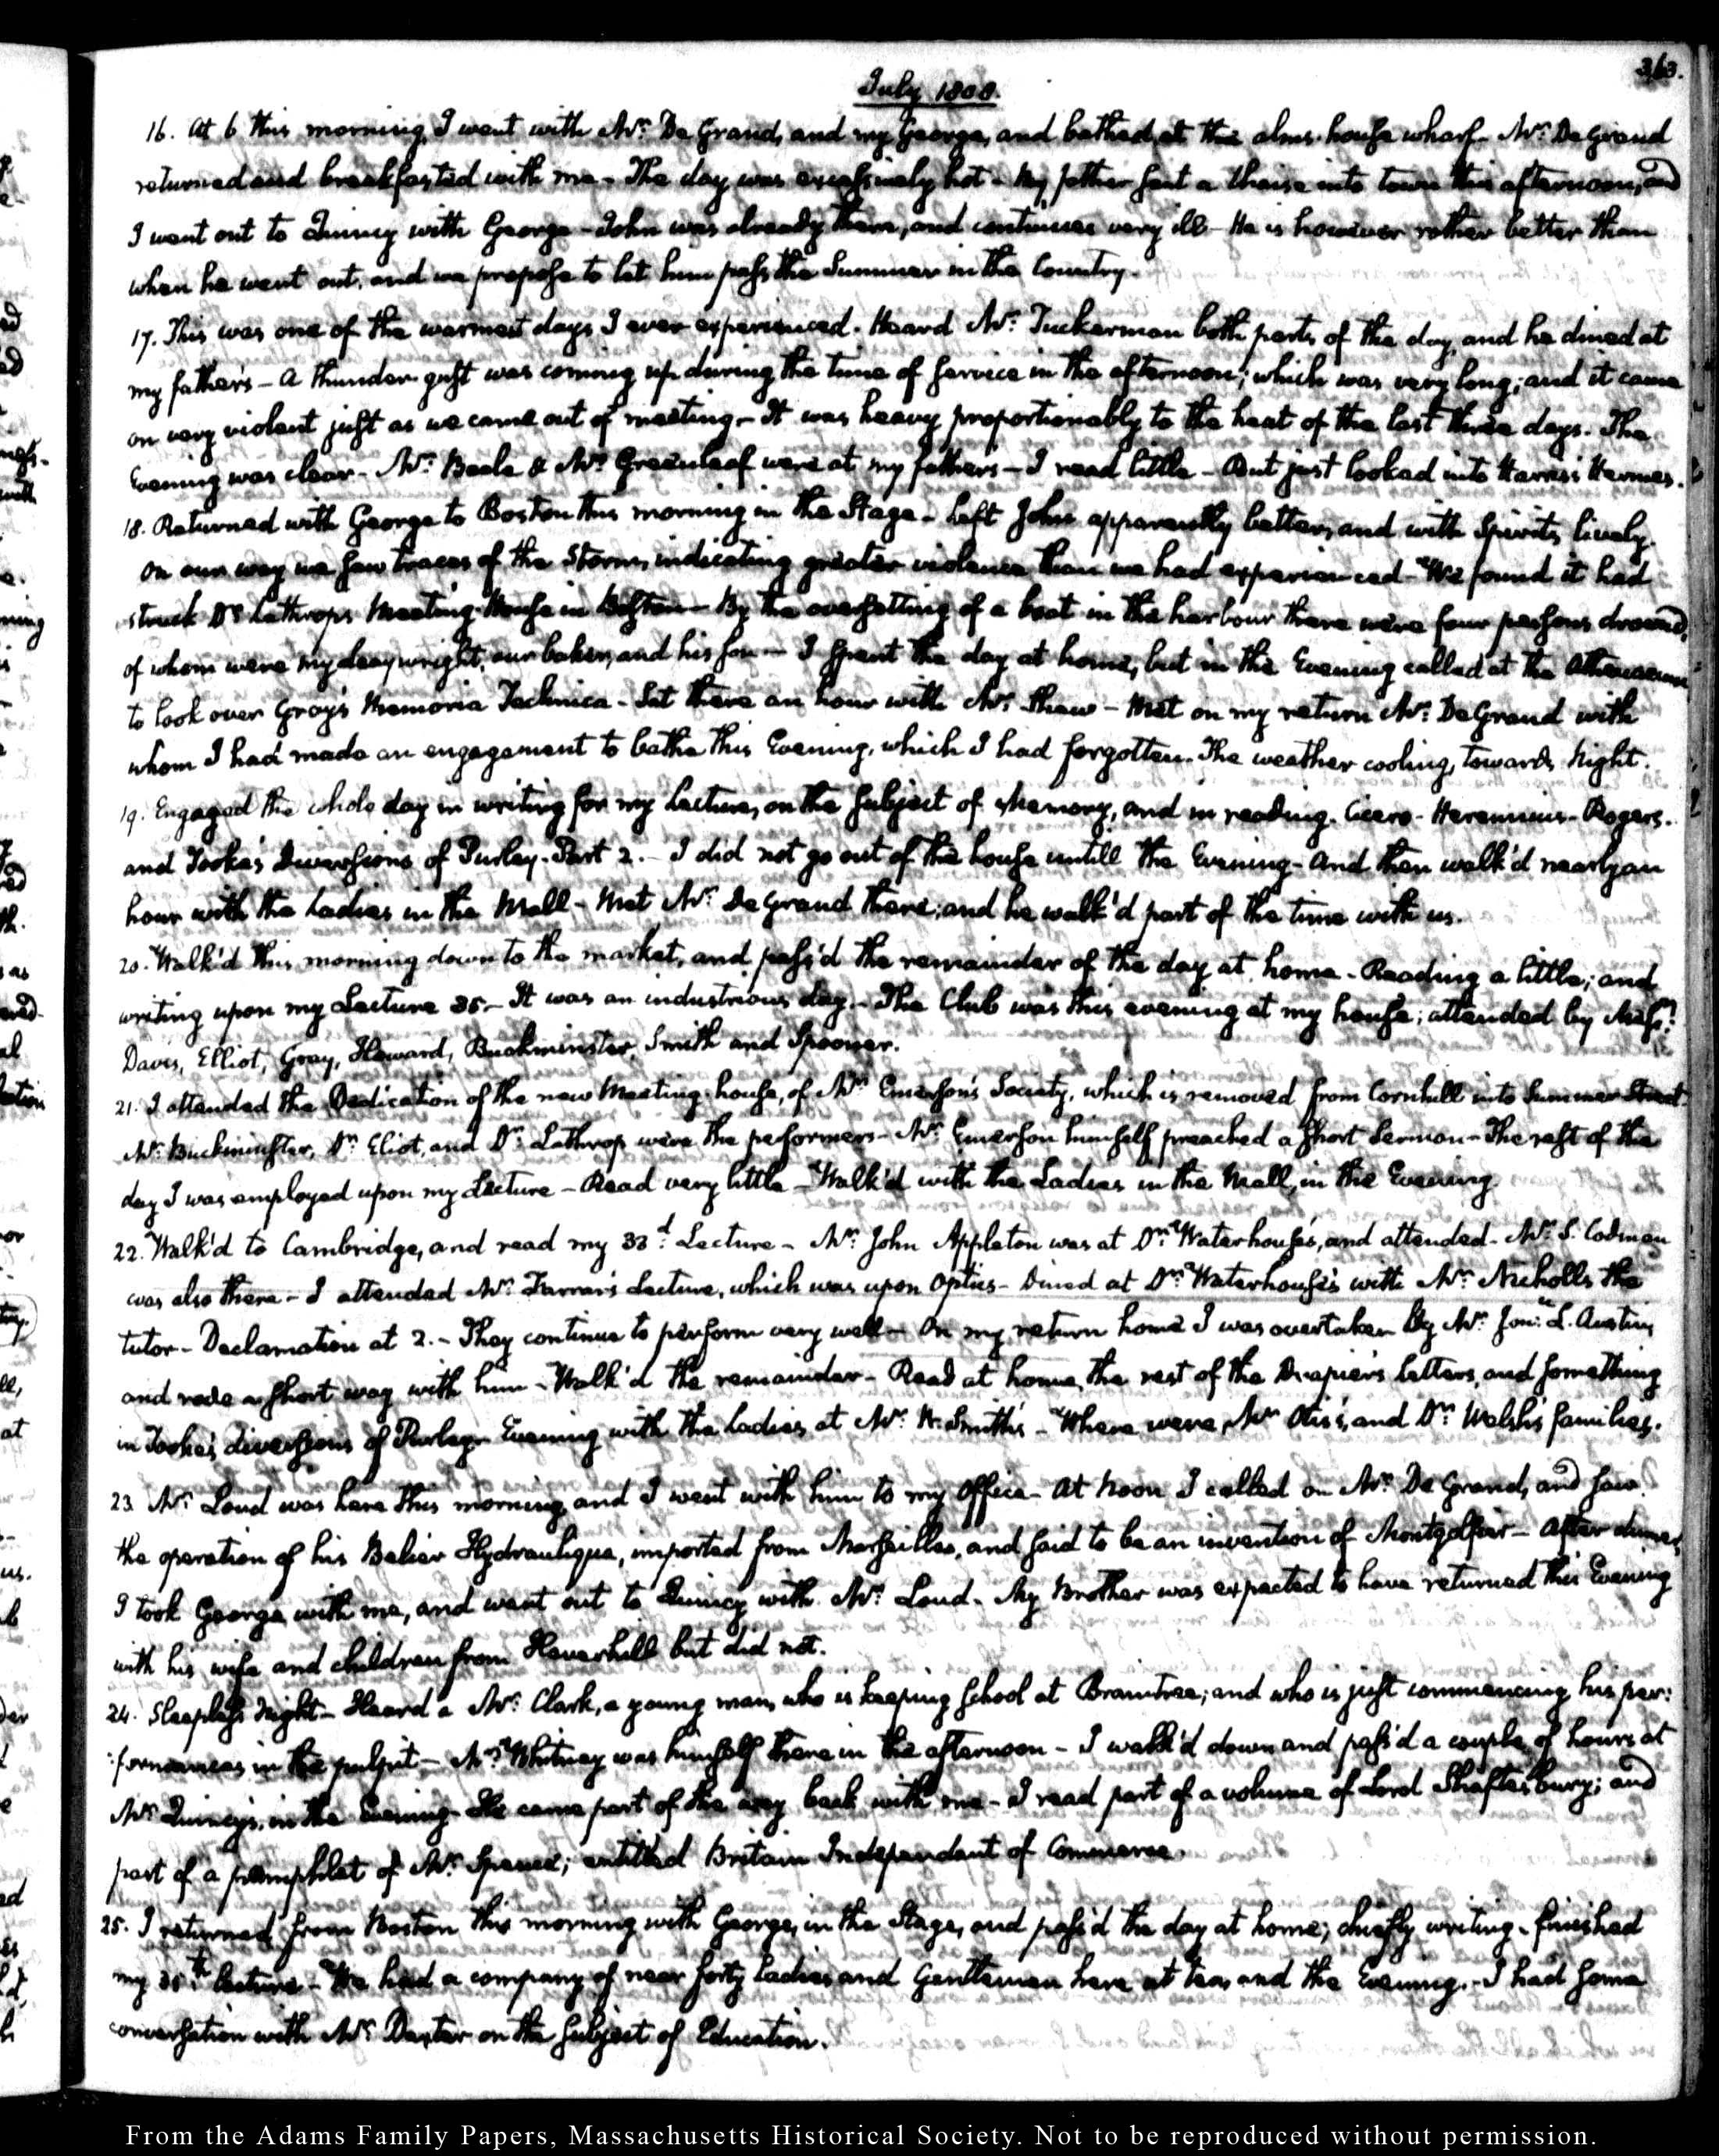 363.
July 1808.
16. At 6 this morning, I went with Mr: De Grand, and my George, and bathed at the alms-house wharf. Mr: De Grand
returned and breakfasted with me - The day was excessively hot - My father sent a Chaise into town this afternoon, and
I went out to Quincy with George - John was already there, and continues very ill - He is however rather better than
when he went out, and we propose to let him pass the Summer in the Country.
17. This was one of the warmest days I ever experienced. Heard Mr: Tuckerman both parts of the day, and he dined at
my father's - A thunder gust was coming up during the time of service in the afternoon; which was very long; and it came
on very violent just as we came out of meeting - It was heavy proportionably to the heat of the last three days. The
Evening was clear - Mr: Beale & Mr: Greenleaf were at my father's - I read little - But just looked into Harris's Hermes.
18. Returned with George to Boston this morning in the Stage - Left John apparently better, and with Spirits lively.
On our way we saw traces of the Storm, indicating greater violence than we had experienced - We found it had
struck Dr: Lathrop's Meeting House in Boston - By the oversetting of a boat in the harbour there were four persons drown'd,
of whom were my , our baker, and his son - I spent the day at home, but in the Evening called at the Athenaeum
to look over Gray's Memoria Technica - Sat there an hour with Mr: Shaw - Met on my return Mr: De Grand with
whom I had made an engagement to bathe this Evening, which I had forgotten. The weather cooling, towards Night.
19. Engaged the whole day in writing for my Lecture, on the subject of Memory, and in reading. Cicero - Herennius - Rogers.
and Tooke's Diversions of Purley. Part 2. - I did not go out of the house untill the Evening - And then walk'd nearly an
hour with the Ladies in the Mall - Met Mr: De Grand there; and he walk'd part of the time with us.
20. Walk'd this morning down to the market, and pass'd the remainder of the day at home - Reading a little; and
writing upon my Lecture 35 - It was an industrious day. - The Club was this evening at my house; attended by Mess:rs
Davis, Elliot, Gray, Howard, Buckminster, Smith and Spooner.
21. I attended the Dedication of the new Meeting-house, of Mr: Emerson's Society, which is removed from Cornhill into Summer Street.
Mr: Buckminster, Dr: Eliot, and Dr: Lathrop were the performers - Mr: Emerson himself preached a short Sermon - The rest of the
day I was employed upon my Lecture - Read very little - Walk'd with the Ladies in the Mall, in the Evening.
22. Walk'd to Cambridge, and read my 33d: Lecture - Mr: John Appleton was at Dr: Waterhouse's, and attended - Mr: S. Codman
was also there - I attended Mr: Farrar's Lecture, which was upon Optics - Dined at Dr: Waterhouse's with Mr: Nicholls the
tutor - Declamation at 2. - They continue to perform very well - On my return home I was overtaken by Mr: Jon:n L. Austin,
and rode a short way with him - Walk'd the remainder - Read at home, the rest of the Drapier's letters, and something
in Tooke's diversions of Purley - Evening with the Ladies, at Mr: W. Smith's - Where were, Mr: Otis's, and Dr: Welsh's families.
23. Mr: Loud was here this morning, and I went with him to my Office - At Noon I called on Mr: De Grand, and saw
the operation of his Belier Hydraulique, imported from Marseilles, and said to be an invention of Montgolfier - After dinner,
I took George with me, and went out to Quincy with Mr: Loud. My Brother was expected to have returned this Evening
with his wife and children from Haverhill but did not.
24. Sleepless Night - Heard a Mr: Clark, a young man, who is keeping school at Braintree; and who is just commencing his per:
:formances in the pulpit - Mr: Whitney was himself there in the afternoon - I walk'd down and pass'd a couple of hours at
Mr: Quincy's, in the Evening - He came part of the way back with me - I read part of a volume of Lord Shaftesbury; and
part of a pamphlet of Mr: Spence; entitled Britain Independent of Commerce.
25. I returned from Boston this morning with George, in the Stage, and pass'd the day at home; chiefly writing - finished
my 35th: lecture - We had a company of near forty Ladies and Gentlemen here at tea, and the Evening. - I had some
conversation with Mr: Dexter on the subject of Education.
From the Adams Family Papers, Massachusetts Historical Society. Not to be reproduced without permission.